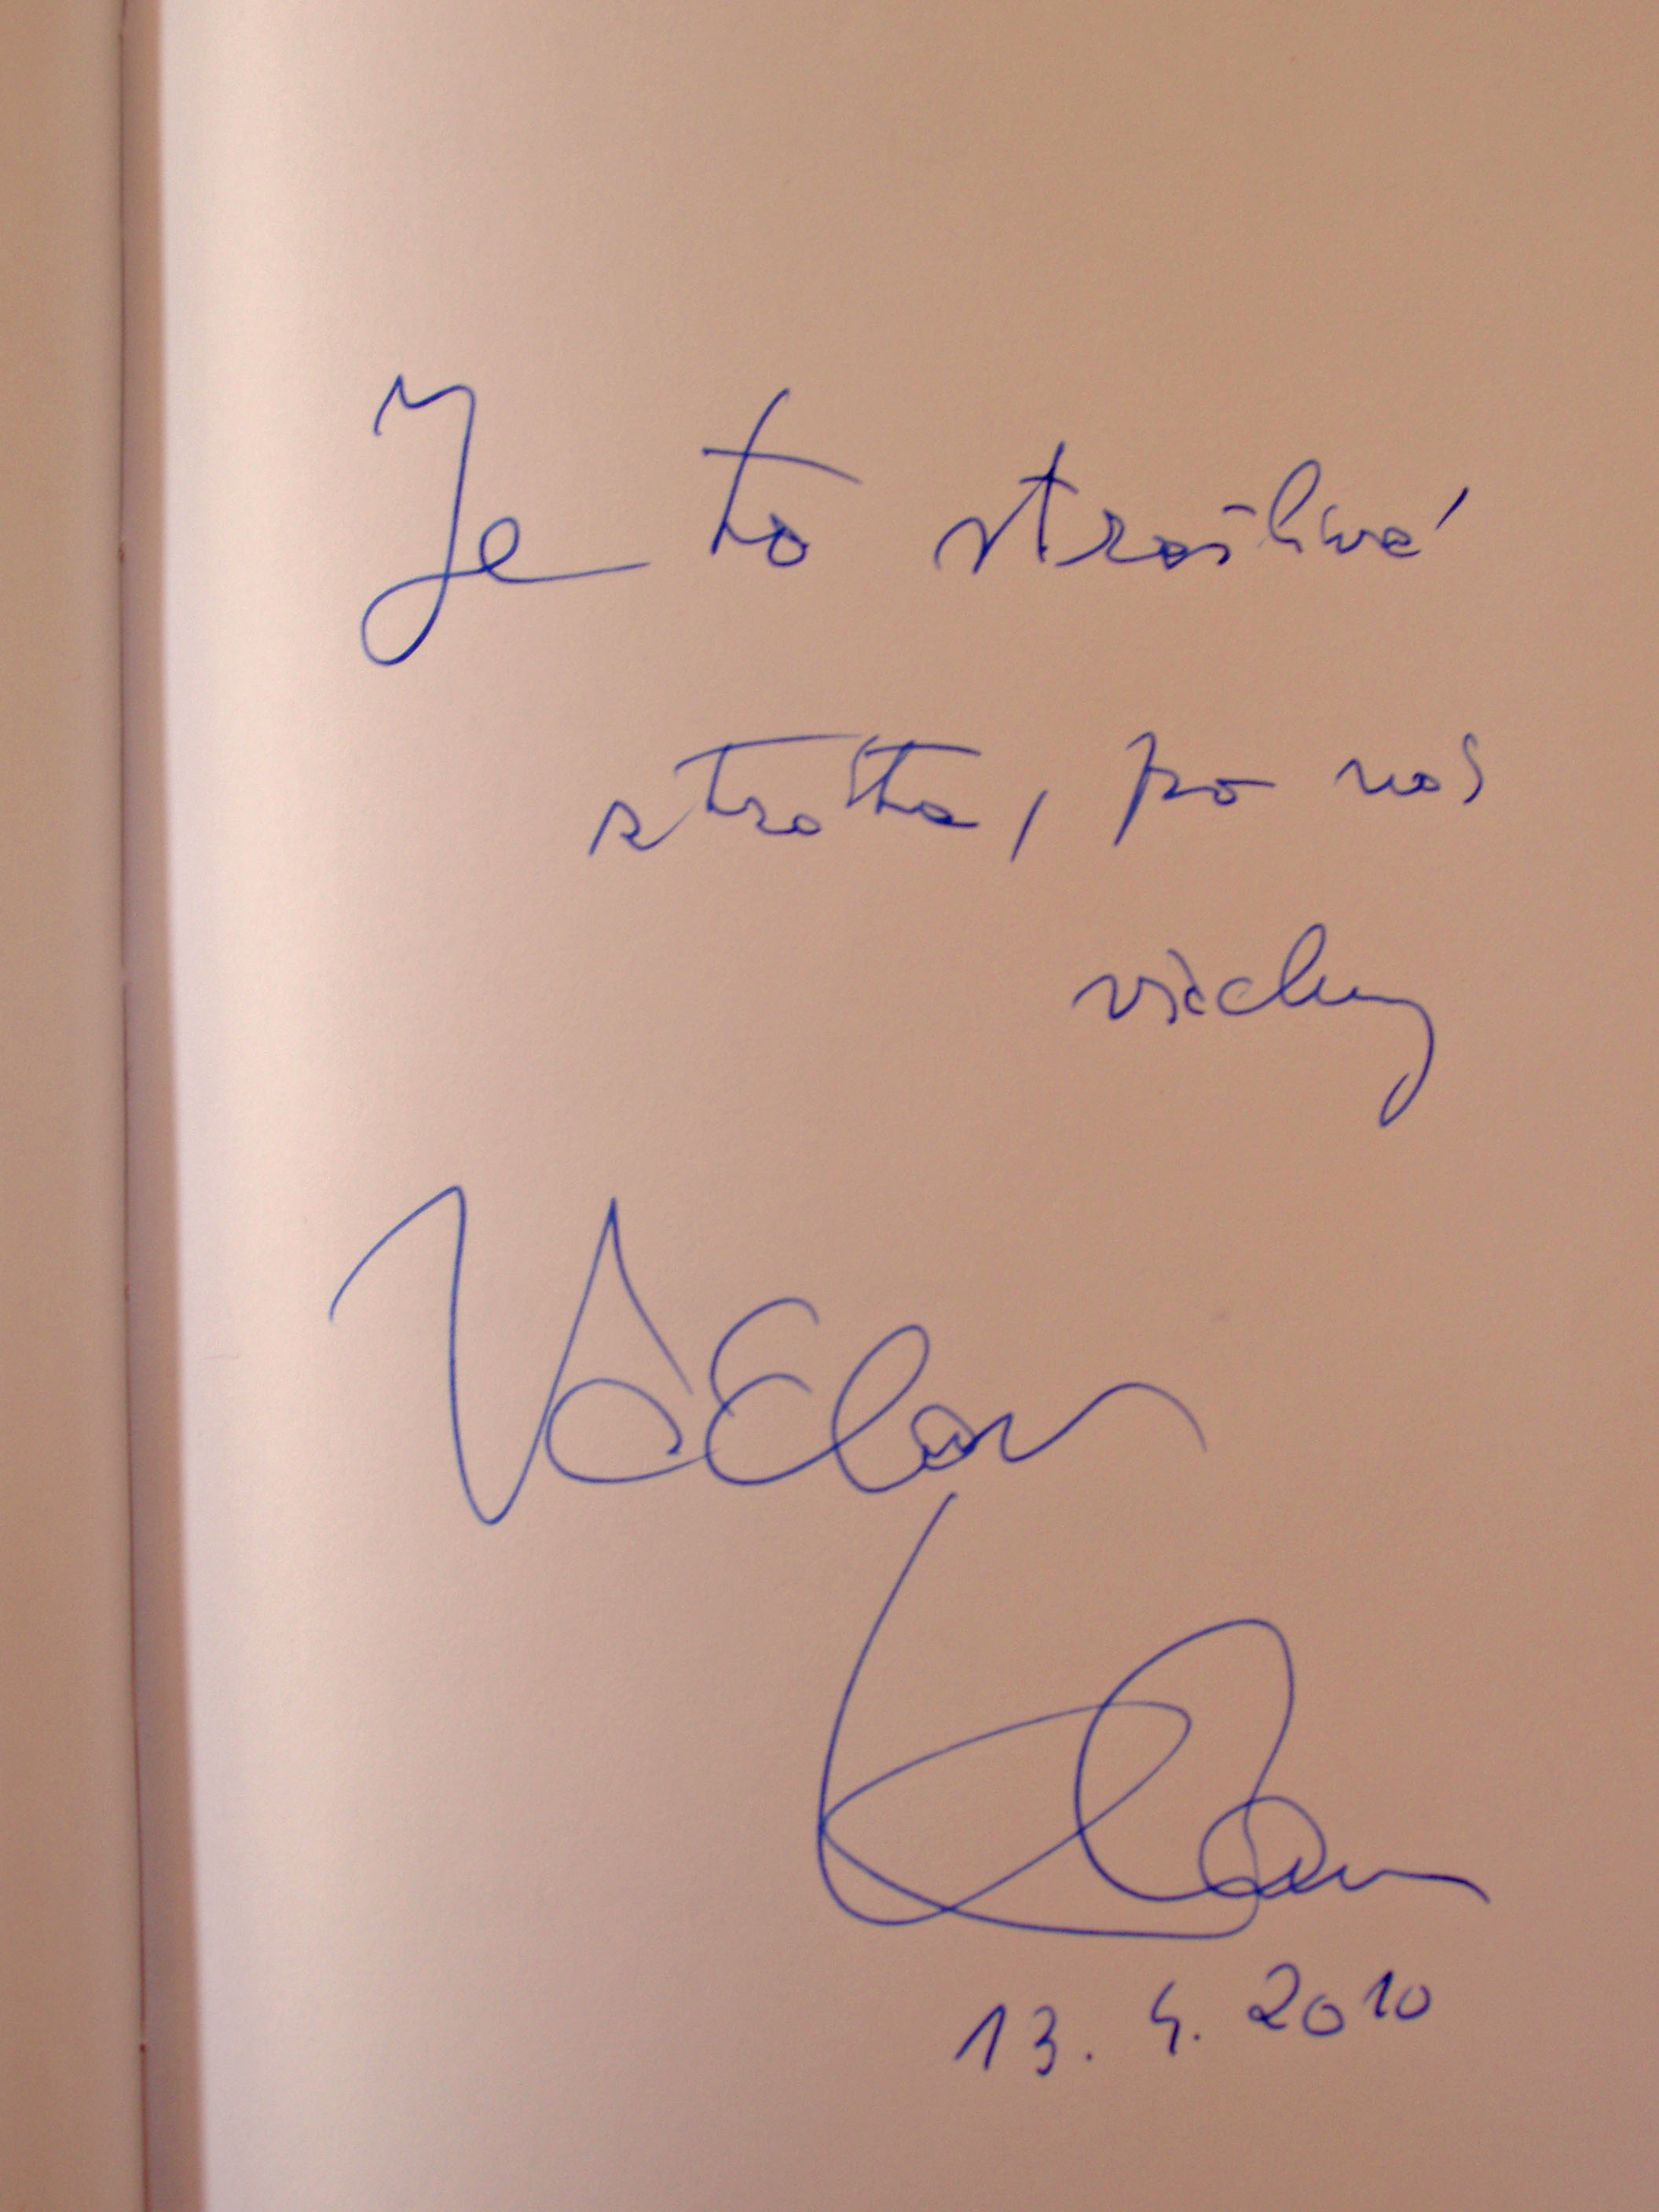 Je to strašlivá
ztráta, pro nás
všechny
Václav
Klaus
13. 4. 2010